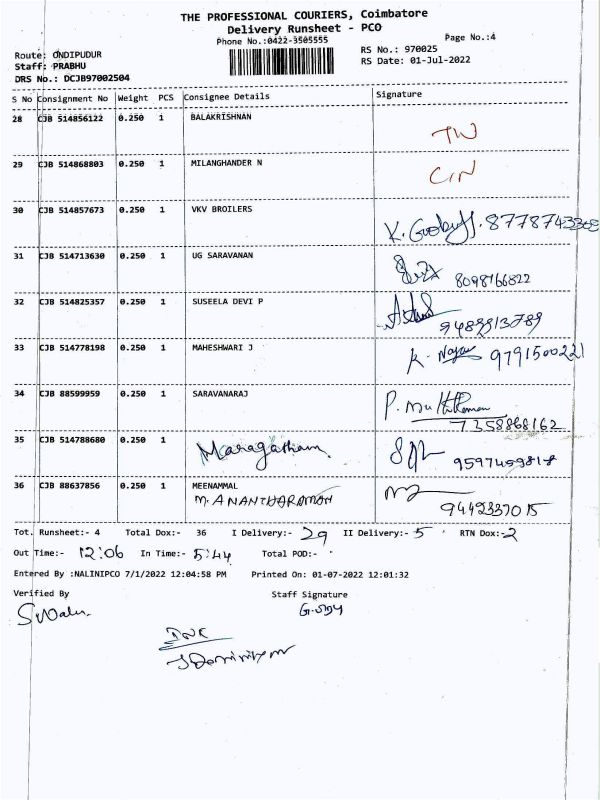 THE PROFESSIONAL COURIERS, Coimbatore
Delivery Runsheet - PCO
Phone No.:0422-3505555
Page No.:4
Route: ONDIPUDUR
RS No.: 970025
Staff: PRABHU
RS Date: 01-Jul-2022
DRS No.: DCJB97002504
S No Consignment No Weight PCS Consignee Details Signature
28 CJB 514856122 0.250 1 BALAKRISHNAN
29 CJB 514868803 0.250 1 MILANGHANDER N
30 CJB 514857673 0.250 1 VKV BROILERS K.
31 CJB 514713630 0.250 1 UG SARAVANAN
8098766822
32 CJB 514825357 0.250 1 SUSEELA DEVI P
33 CJB 514778198 0.250 1 MAHESHWARI J K. 9791500221
34 CJB 88599959 0.250 1 SARAVANARAJ P.
7358868162
35 CJB 514788680 0.250 1 Maragatham
36 CJB 88637856 0.250 1 MEENAMMAL
M. ANANTHARAMAN
Tot. Runsheet:- 4 Total Dox:- 36 I Delivery:- 29 II Delivery:- 5 RTN Dox:-2
Out Time:- 12:06 In Time:- 5:44 Total POD:-
Entered By :NALINIPCO 7/1/2022 12:04:58 PM Printed On: 01-07-2022 12:01:32
Verified By Staff Signature